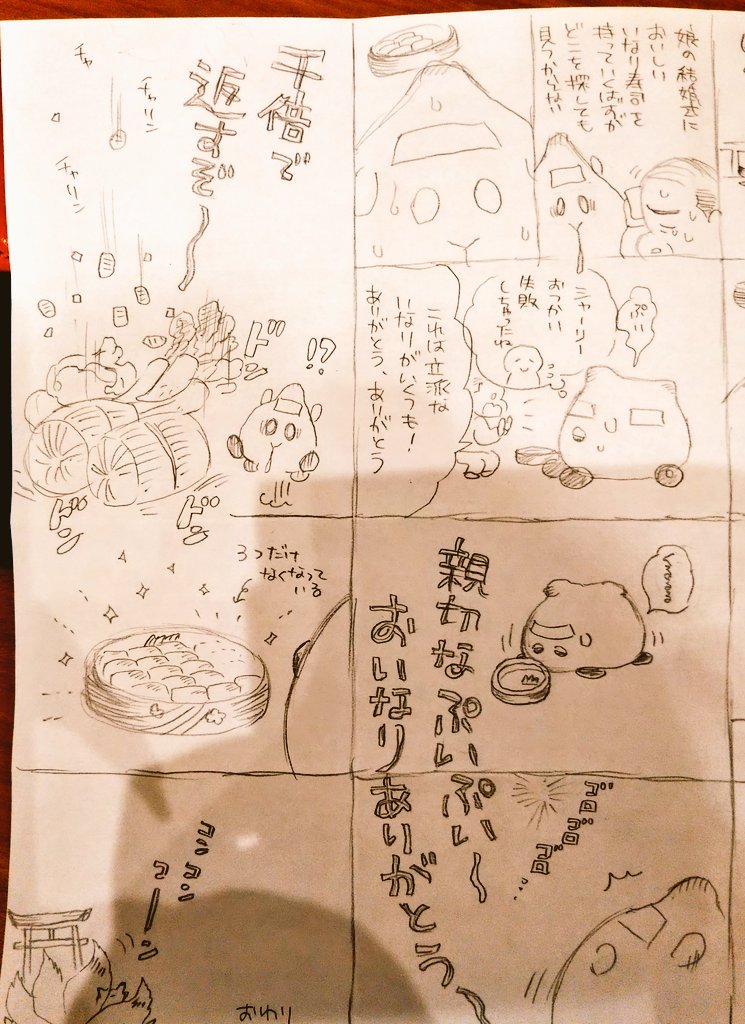 娘の結婚式に
おいしい
いなり寿司を
持っていくはずが
どこを探しても
見つからない
ぷい
シャーリー
おつかい
失敗
しちゃったね
これは立派な
いなりがいくつも!
ありがとう、ありがとう
親切なぷいぷい〜
おいなりありがとう〜
ゴロゴロ
ゴロ
ゴロ…
千倍で
返すぞ〜
チャ
チャリン
チャリン
!?
ドン
ドン
ドン
3つだけ
なくなって
いる
コン
コン
コーン
おわり